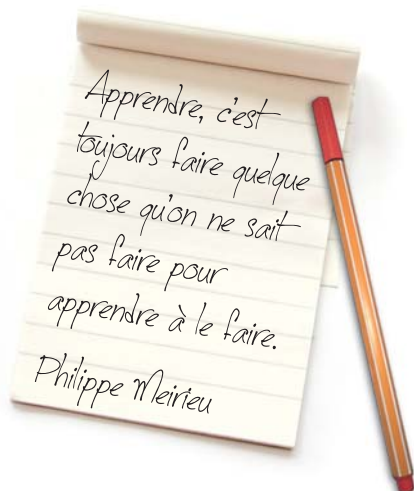 Apprendre, c'est
toujours faire quelque
chose qu'on ne sait
pas faire pour
apprendre à le faire.
Philippe Meirieu